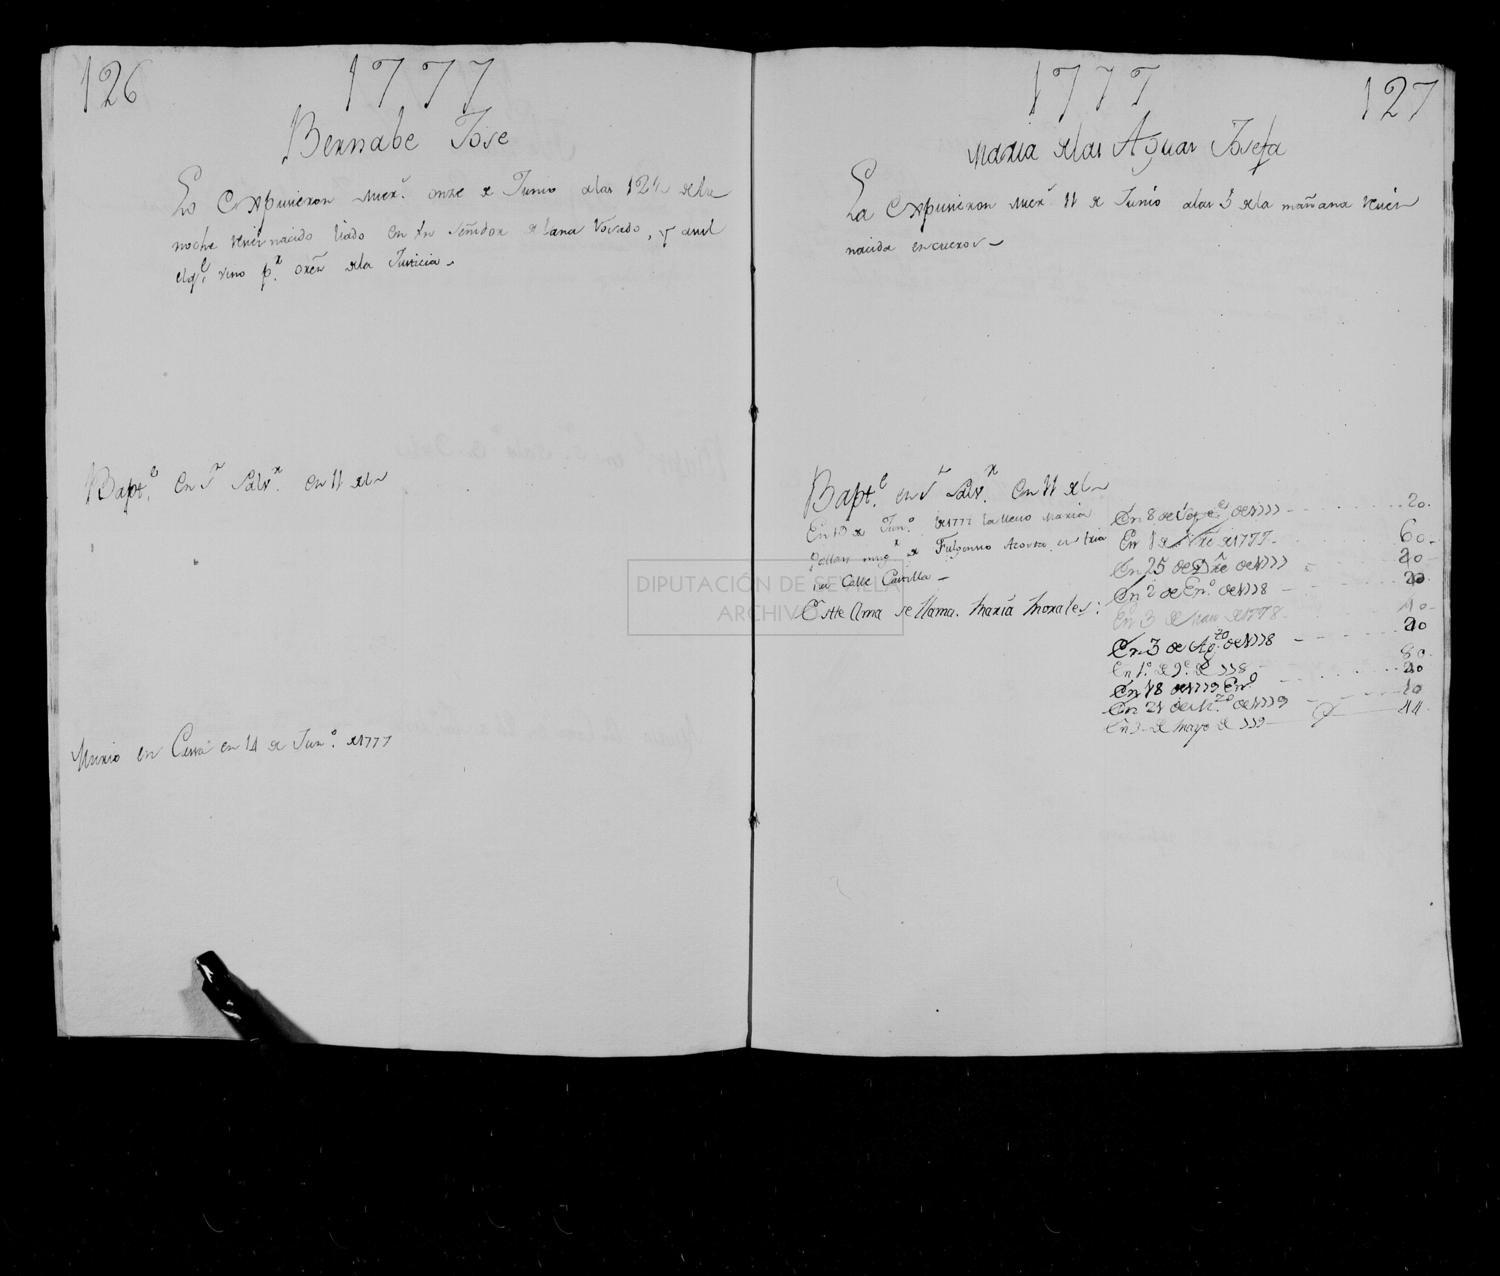 126
1777
Bernabe Jose
Lo Expusieron Mier.s onze de Junio alas 12½ dela
noche resien nacido liado en Un señidor de lana , y Asul
elq.e vino p.r oren dela Justicia
Bapt.e en S.r Salv.r en 11 del
Murio en Cassa en 14 de Jun.o de1777
1777
127
Maria delas Aguas Josefa
La Expusieron Mier.s 11 de Junio alas 3 dela mañana resien
nacida en cueros
Bapt.e en S.r Salv.r en 11 del
En 13 de Jun.o de1777 la llevo Maria
mug.r de Fulgensio Acosta en tria
na Calle Castilla
Este Ama se llama. Maria Morales:
En 8 de de1777 20.
En 1 de Nre de1777 60
En 25 de Dre de1777 20
En 2 de En.o de1778 20
En 3 de de1778 40
En 3 de Ag.to de1778 20
En 1.o de 9.e de 778 80
En 18 de1779 En.o 20
En 21 de M.zo de1779 10
En 3 de Mayo de 779 44
DIPUTACIÓN DE SEVILLA
ARCHIVO